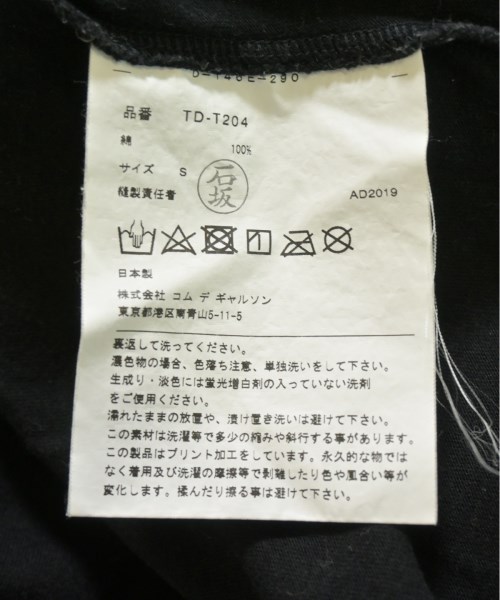 D-T40E-290
品番 TD-T204
綿 100%
サイズ S
縫製責任者 石坂 AD2019
日本製
株式会社 コム デ ギャルソン
東京都港区南青山5-11-5
裏返して洗ってください。
濃色物の場合、色落ち注意、単独洗いをして下さい。
生成り・淡色には蛍光増白剤の入っていない洗剤
をご使用ください。
濡れたままの放置や、漬け置き洗いは避けて下さい。
この素材は洗濯等で多少の縮みや斜行する事があります。
この製品はプリント加工をしています。永久的な物では
なく着用及び洗濯の摩擦等で剥離したり色や風合い等が
変化します。揉んだり擦る事は避けて下さい。